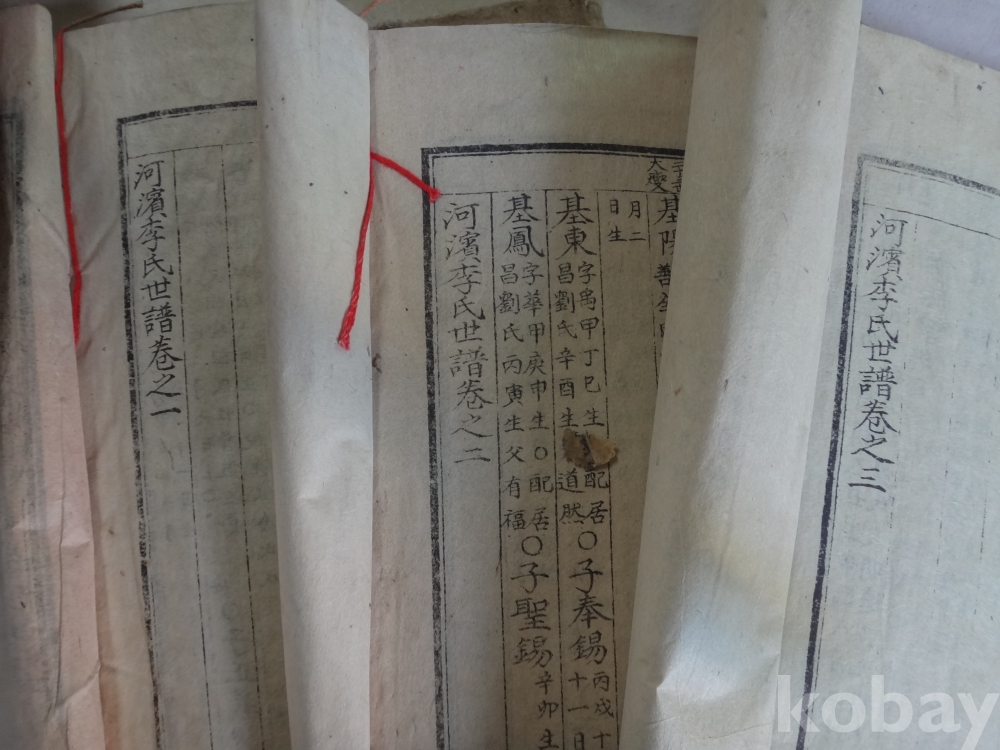 河濱李氏世譜卷之一
基
月二
日生
基東
字禹甲丁巳生 配居
昌劉氏辛酉生 道然
○子奉錫
丙戌十
十一日
基鳳
字華甲庚申生○配居
昌劉氏丙寅生父有福
○子聖錫
辛卯生
河濱李氏世譜卷之二
河濱李氏世譜卷之三
kobay